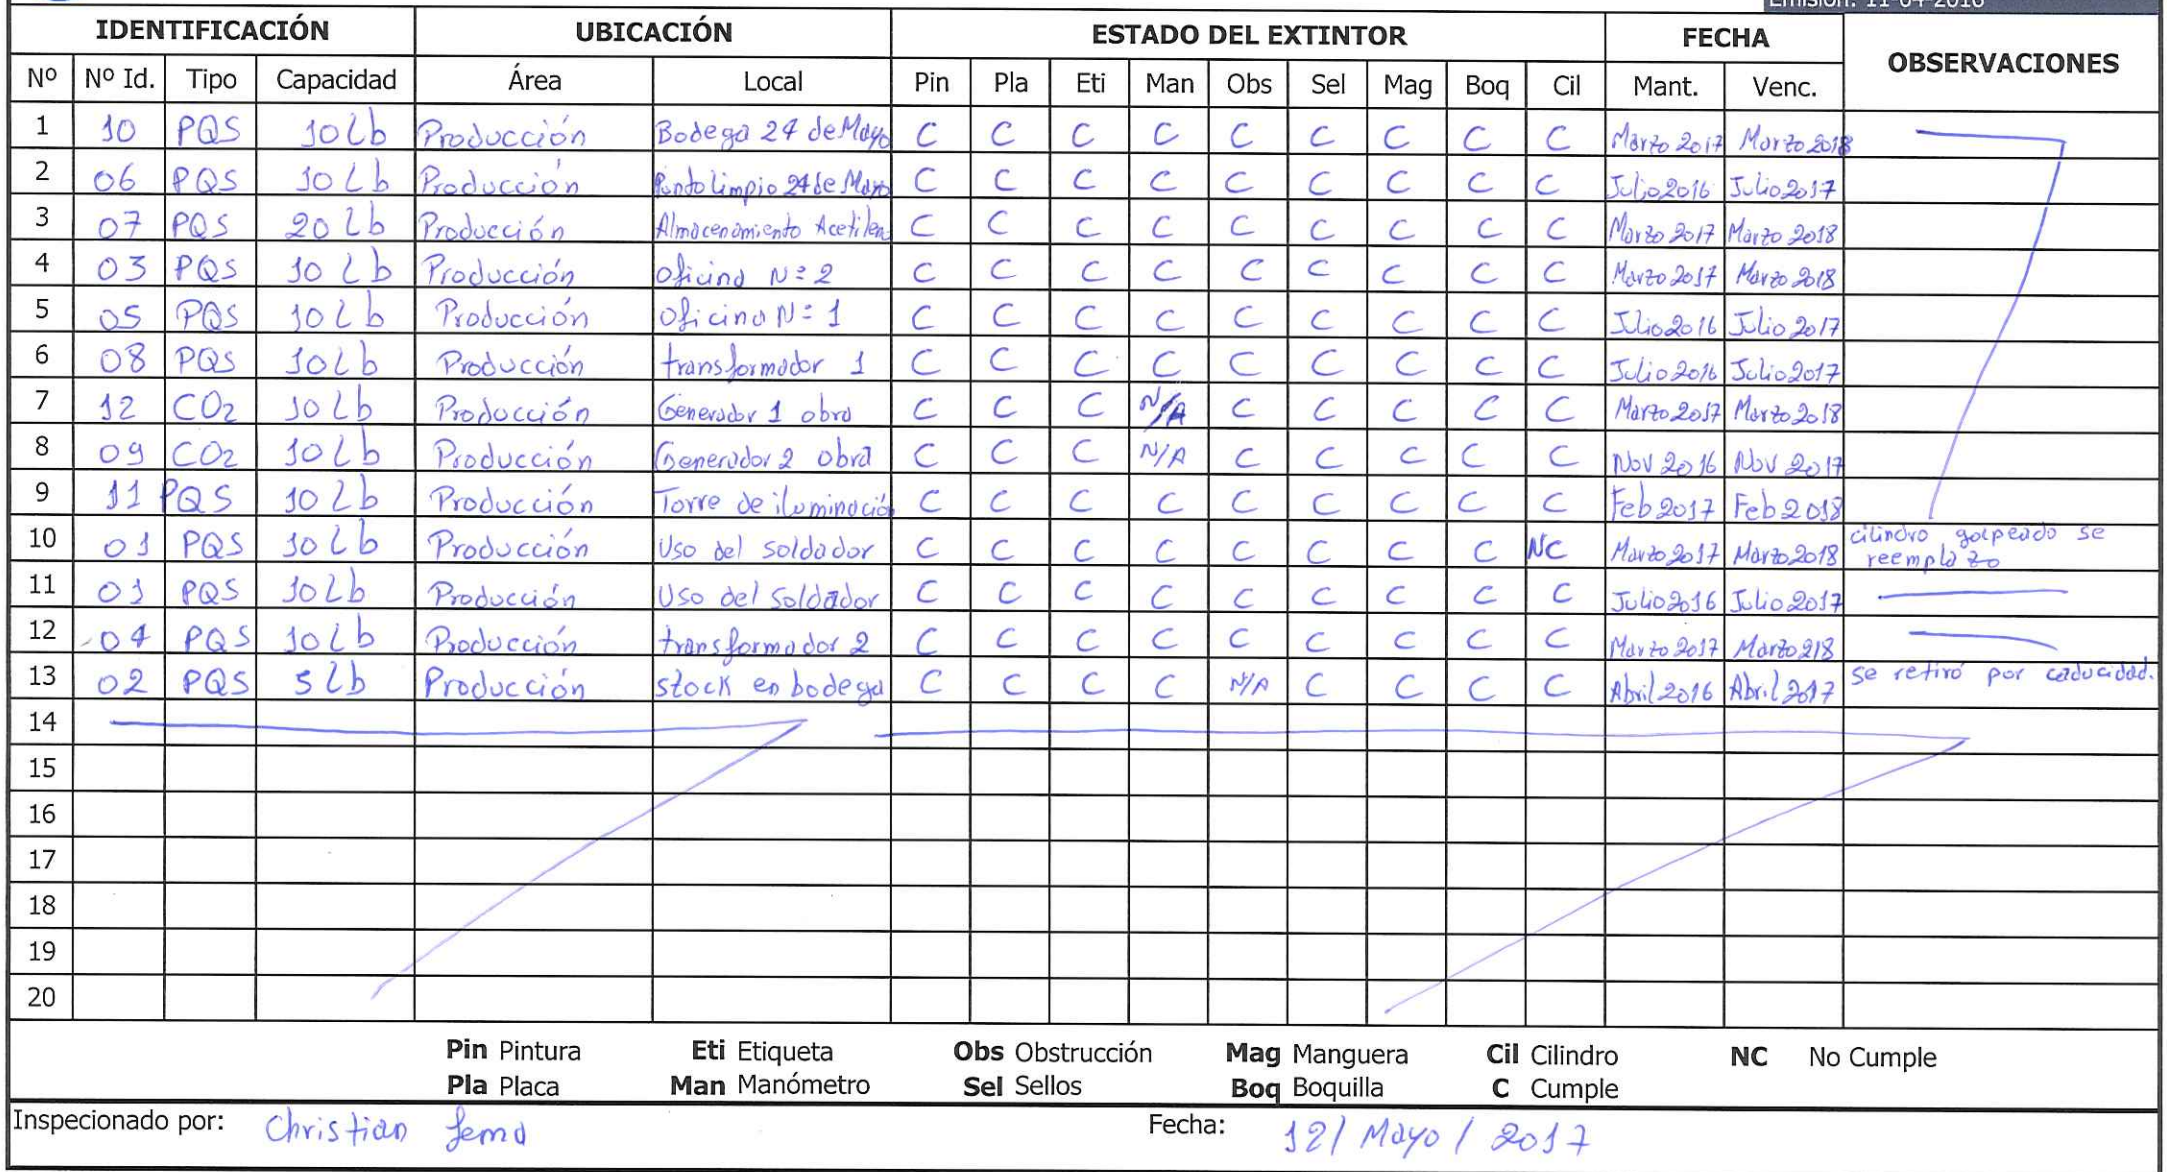 Emisión: 11-04-2016
IDENTIFICACIÓN UBICACIÓN ESTADO DEL EXTINTOR FECHA OBSERVACIONES
Nº Nº Id. Tipo Capacidad Área Local Pin Pla Eti Man Obs Sel Mag Boq Cil Mant. Venc.
1 10 PQS 10 Lb Producción Bodega 24 de Mayo C C C C C C C C C Marzo 2017 Marzo 2018
2 06 PQS 10 Lb Producción Punto limpio 24 de Mayo C C C C C C C C C Julio 2016 Julio 2017
3 07 PQS 20 Lb Producción Almacenamiento Acetilen C C C C C C C C C Marzo 2017 Marzo 2018
4 03 PQS 10 Lb Producción Oficina Nº 2 C C C C C C C C C Marzo 2017 Marzo 2018
5 05 PQS 10 Lb Producción Oficina Nº 1 C C C C C C C C C Julio 2016 Julio 2017
6 08 PQS 10 Lb Producción transformador 1 C C C C C C C C C Julio 2016 Julio 2017
7 12 CO2 10 Lb Producción Generador 1 obra C C C N/A C C C C C Marzo 2017 Marzo 2018
8 09 CO2 10 Lb Producción Generador 2 obra C C C N/A C C C C C Nov 2016 Nov 2017
9 11 PQS 10 Lb Producción Torre de iluminación C C C C C C C C C Feb 2017 Feb 2018
10 01 PQS 10 Lb Producción Uso del soldador C C C C C C C C NC Marzo 2017 Marzo 2018 cilindro golpeado se
reemplazo
11 01 PQS 10 Lb Producción Uso del soldador C C C C C C C C C Julio 2016 Julio 2017
12 04 PQS 10 Lb Producción transformador 2 C C C C C C C C C Marzo 2017 Marzo 218
13 02 PQS 5 Lb Producción stock en bodega C C C C N/A C C C C Abril 2016 Abril 2017 se retiró por caducidad.
14
15
16
17
18
19
20
Pin Pintura Eti Etiqueta Obs Obstrucción Mag Manguera Cil Cilindro NC No Cumple
Pla Placa Man Manómetro Sel Sellos Boq Boquilla C Cumple
Inspecionado por: Christian Fecha: 12/ Mayo / 2017